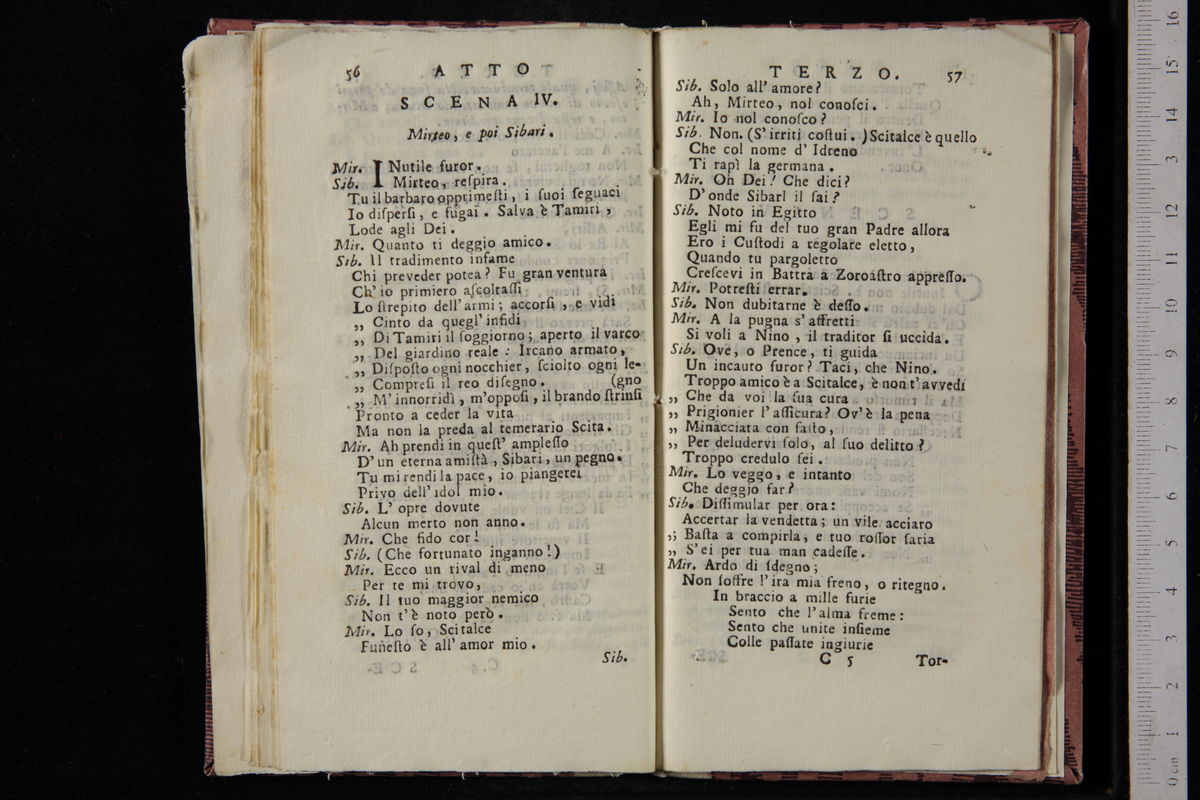 56 ATTO
SCENA IV.
Mirteo, e poi Sibari.
Mir. INutile furor.
Sib. Mirteo, reſpira.
Tu il barbaro opprimeſti, i ſuoi ſeguaci
Io diſperſi, e fugai. Salva è Tamiri,
Lode agli Dei.
Mir. Quanto ti deggio amico.
Sib. Il tradimento infame
Chi preveder potea? Fu gran ventura
Ch' io primiero aſcoltaſſi
Lo ſtrepito dell' armi; accorſi, e vidi
„ Cinto da quegl' infidi
„ Di Tamiri il ſoggiorno; aperto il varco
„ Del giardino reale: Ircano armato,
„ Diſpoſto ogni nocchier, ſciolto ogni le-
„ Compreſi il reo diſegno. (gno
„ M' innorridì, m'oppoſi, il brando ſtrinſi
Pronto a ceder la vita
Ma non la preda al temerario Scita.
Mir. Ah prendi in queſt' ampleſſo
D' un eterna amiſtà, Sibari, un pegno.
Tu mi rendi la pace, io piangerei
Privo dell' idol mio.
Sib. L' opre dovute
Alcun merto non anno.
Mir. Che fido cor!
Sib. (Che fortunato inganno!)
Mir. Ecco un rival di meno
Per te mi trovo,
Sib. Il tuo maggior nemico
Non t' è noto però.
Mir. Lo ſo, Scitalce
Funeſto è all' amor mio.
Sib.
TERZO. 57
Sib. Solo all' amore?
Ah, Mirteo, nol conoſci.
Mir. Io nol conoſco?
Sib. Non. (S' irriti coſtui.) Scitalce è quello
Che col nome d' Idreno
Ti rapì la germana.
Mir. Oh Dei! Che dici?
D' onde Sibari il ſai?
Sib. Noto in Egitto
Egli mi fu del tuo gran Padre allora
Ero i Cuſtodi a regolare eletto,
Quando tu pargoletto
Creſcevi in Battra a Zoroaſtro appreſſo.
Mir. Potreſti errar.
Sib. Non dubitarne è deſſo.
Mir. A la pugna s' affretti
Si voli a Nino, il traditor ſi uccida.
Sib. Ove, o Prence, ti guida
Un incauto furor? Taci, che Nino.
Troppo amico è a Scitalce, è non t' avvedi
„ Che da voi la ſua cura
„ Prigionier l' aſſicura? Ov' è la pena
„ Minacciata con faſto,
„ Per deludervi ſolo, al ſuo delitto?
Troppo credulo ſei.
Mir. Lo veggo, e intanto
Che deggio far?
Sib. Diſſimular per ora:
Accertar la vendetta; un vile acciaro
„ Baſta a compirla, e tuo roſſor ſaria
„ S' ei per tua man cadeſſe.
Mir. Ardo di ſdegno;
Non ſoffre l' ira mia freno, o ritegno.
In braccio a mille furie
Sento che l' alma freme:
Sento che unite inſieme
Colle paſſate ingiurie
C 5 Tor-